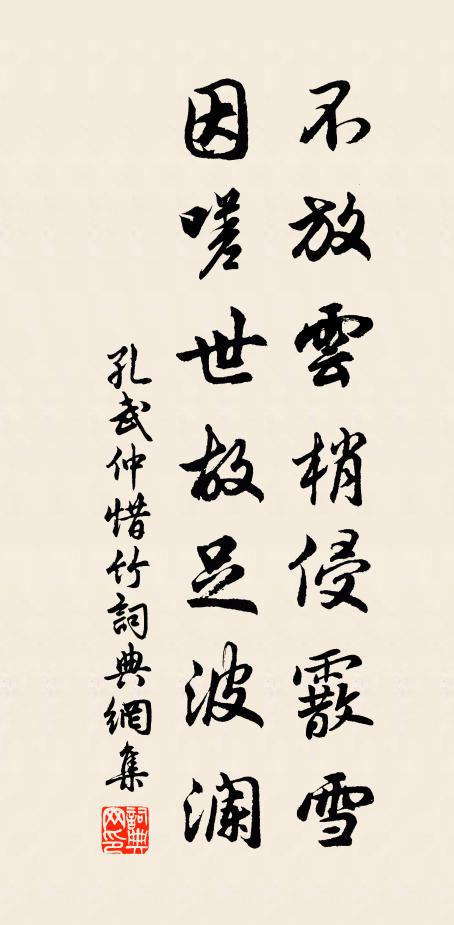 不放雲梢侵霰雪
因嗟世故足波澜
孔武仲惜竹詞典網集
詞典网印